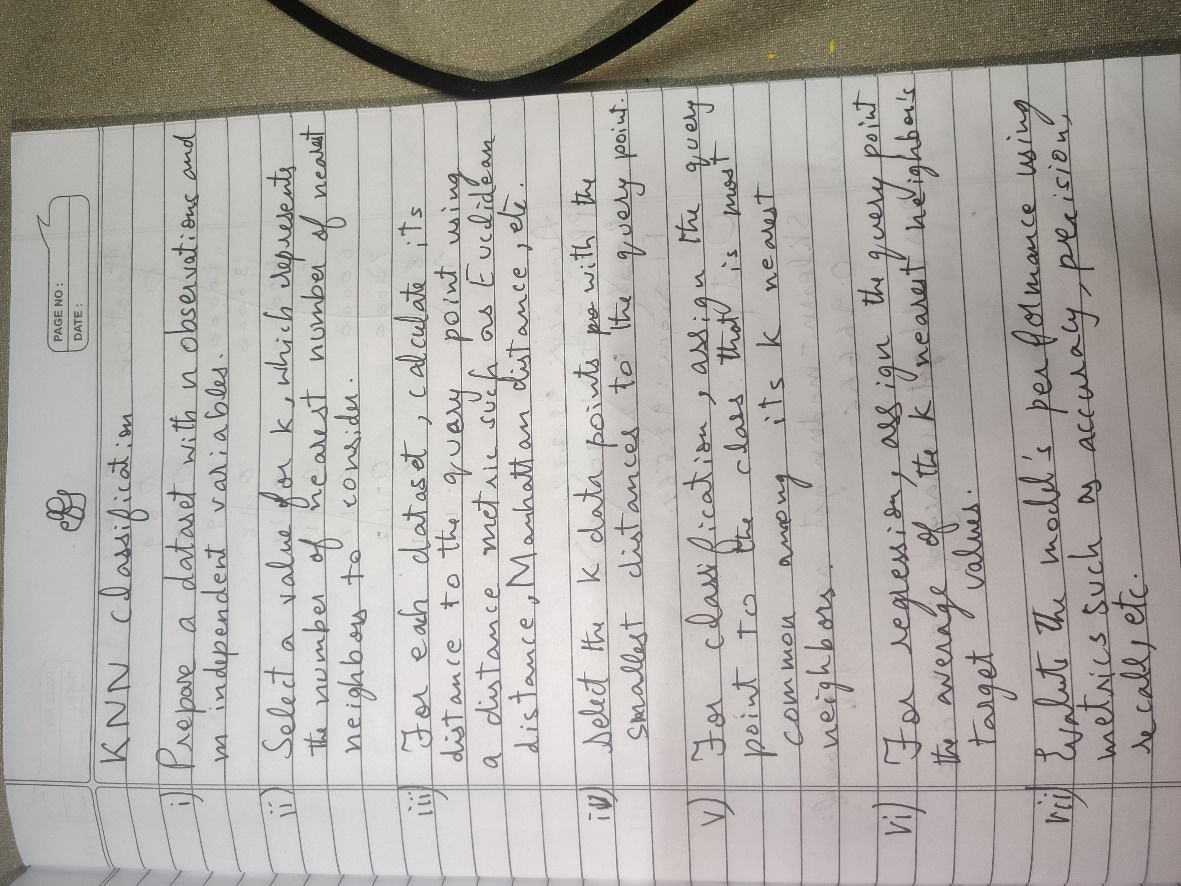 PAGE NO :
DATE :
KNN classification
i) Prepare a dataset with n observations and
m independent variables.
ii) Select a value for k, which represents
the number of nearest number of nearest
neighbors to consider.
iii) For each dataset, calculate its
distance to the query point using
a distance metric such as Euclidean
distance, Manhattan distance, etc.
iv) Select the k data points with the
smallest distances to the query point.
v) For classification, assign the query
point to the class that is most
common among its k nearest
neighbors.
vi) For regression, assign the query point
the average of the k nearest neighbor's
target values.
vii) Evalute the model's performance using
metrics such as accuracy, precision,
recall, etc.